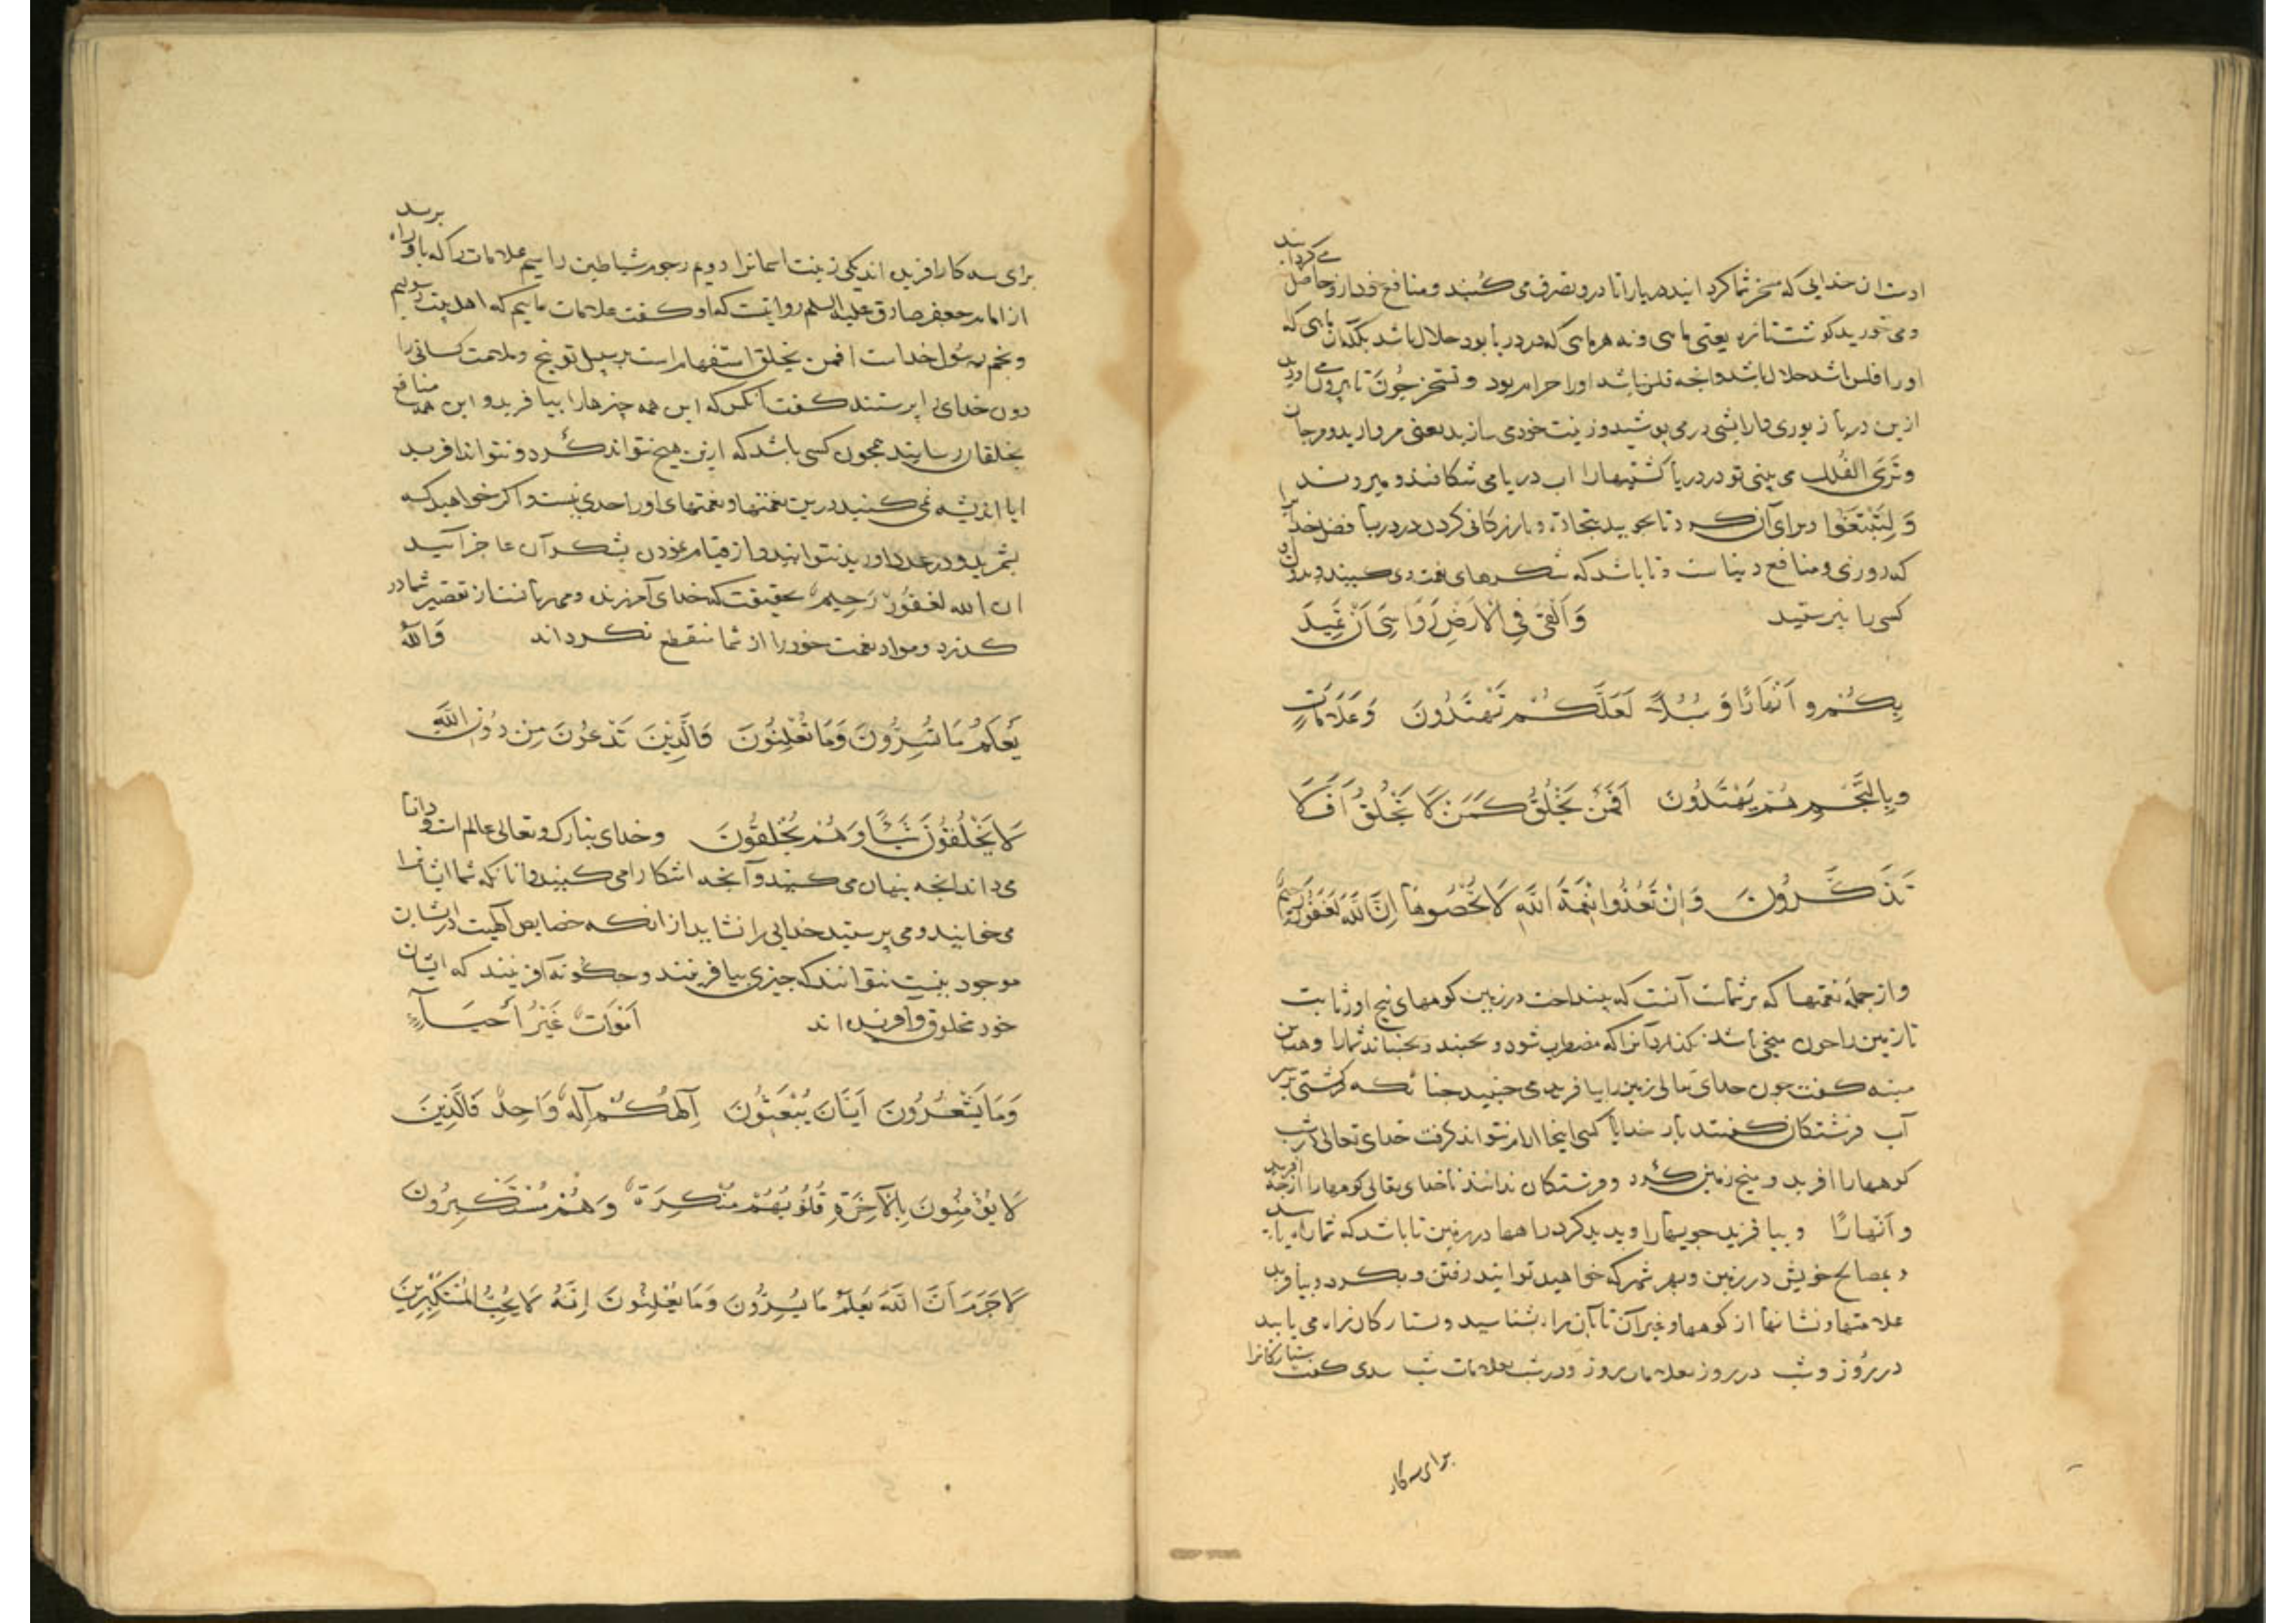 اوست آن خدایی که مسخر شما کردانید دریا را تا درو تصرف می کنید و منافع خود ازو حاصل می کردانید
و می خورید کوشت تازه یعنی ماهی و نه هر ماهی که در دریا بود حلال باشد بلکه آن ماهی که
اورا فلس باشد حلال باشد و آنچه فلس نباشد اورا حرام بود و تستخرجون تا بیرون می اورید
ازین دریا زیوری و ارایشی در می پوشید و زینت خود می سازید یعنی مروارید و مرجان
وَتَرَى الفُلك می بینی تو در دریا کشتیها را اب دریا می شکافند و میروند
وَلِتَبْتَغُوا و برای آن کرد تا بجویید بتجارت و بازرکانی کردن در دریا فضل خدا را
که روزی و منافع دنیاست و تا باشد که شکرهای نعمت وی کنید و بدون او
کسی را نپرستید وَاَلْقىٰ فِي الْاَرْضِ رَوَاسِيَ اَنْ تَمِيدَ
بِكُمْ وَ اَنْهَارًا وَ سُبُلًا لَعَلَّكُمْ تَهْتَدُونَ وَعَلَامَاتٍ
وَبِالنَّجْمِ هُمْ يَهْتَدُونَ اَفَمَنْ يَخْلُقُ كَمَنْ لَا يَخْلُقُ اَفَلَا
تَذَكَّرُونَ وَاِنْ تَعُدُّوا نِعْمَةَ اللَّهِ لَا تُحْصُوهَا اِنَّ اللَّهَ لَغَفُورٌ رَحِيمٌ
و از جملهٔ نعمتها که بر شماست آنست که بینداخت در زمین کوههای بیخ اور ثابت
تا زمین را چون میخی باشد نکذارد آنرا که مضطرب شود و بجنبد و بجنباند شما را وهب بن
منبه کفت چون خدای تعالی زمین را بیافرید می جنبید چنانکه کشتی بر سر
آب فرشتکان کفتند بار خدایا کسی اینجا ارام نتواند کرفت خدای تعالی در شب
کوهها را افرید و میخ زمین کرد و فرشتکان ندانند تا خدای تعالی کوهها را از چه افرید
و اَنْهارًا و بیافرید جویهارا و پدید کرد راهها در زمین تا باشد که شما راه یابید
بمصالح خویش در زمین و بهر شهر که خواهید توانید رفتن و بکرد و بیافرید
علامتها و نشانها از کوهها و غیر آن تا بآن راه بشناسید و بستارکان راه می یابید
در روز و شب در روز بعلامات روز و در شب بعلامات شب سدی کفت ستارکانرا
برای سه کار
برای سه کار افریده اند یکی زینت اسمانرا دویم رجوم شیاطین را سیم علامات را که باو راه برسد
از امام جعفر صادق علیه السلم روایتست که او کفت علامات ماییم که اهل بیت رسولیم
و نجم رسول خداست افمن یخلق استفهام است بر سبیل توبیخ و ملامت کسانی را
دون خدای را پرستند کفت آنکس که این همه چیزها را بیافرید و این همه منافع
بخلقان رسانید همچون کسی باشد که ازین هیچ نتواند کرد و نتواند افرید
ایا اندیشه نمی کنید درین نعمتها و نعمتهای اورا حدی نیست و اکر خواهید که
بشمرید و در عدد اورید نتوانید و از قیام نمودن بشکر آن عاجز آیید
ان الله لغفورٌ رَحيمٌ بحقیقت که خدای آمرزنده و مهربانست از تقصیر شما در
کذرد و مواد نعمت خود را از شما منقطع نکرداند وَاللهُ
يَعْلَمُ مَا تُسِرُّونَ وَمَا تُعْلِنُونَ وَالَّذِينَ تَدْعُونَ مِنْ دُونِ اللَّهِ
لَا يَخْلُقُونَ شَيْئًا وَهُمْ يُخْلَقُونَ وخدای تبارک وتعالی عالم است و دانا
می داند انچه پنهان می کنید و آنچه اشکارا می کنید و انانکه شما ایشانرا
می خوانید و می پرستید خدایی را نشایند از انکه خصایص الهیت در ایشان
موجود نیست نتوانند که چیزی بیافرینند و چکونه آفرینند که ایشان
خود مخلوق و آفریده اند اَمْوَاتٌ غَيْرُ اَحْيَاءٍ
وَمَا يَشْعُرُونَ اَيَّانَ يُبْعَثُونَ اِلٰهُكُمْ اِلٰهٌ وَاحِدٌ فَالَّذِينَ
لَا يُؤْمِنُونَ بِالْآخِرَةِ قُلُوبُهُمْ مُنْكِرَةٌ وَهُمْ مُسْتَكْبِرُونَ
لَا جَرَمَ اَنَّ اللَّهَ يَعْلَمُ مَا يُسِرُّونَ وَمَا يُعْلِنُونَ اِنَّهُ لَا يُحِبُّ الْمُسْتَكْبِرِينَ